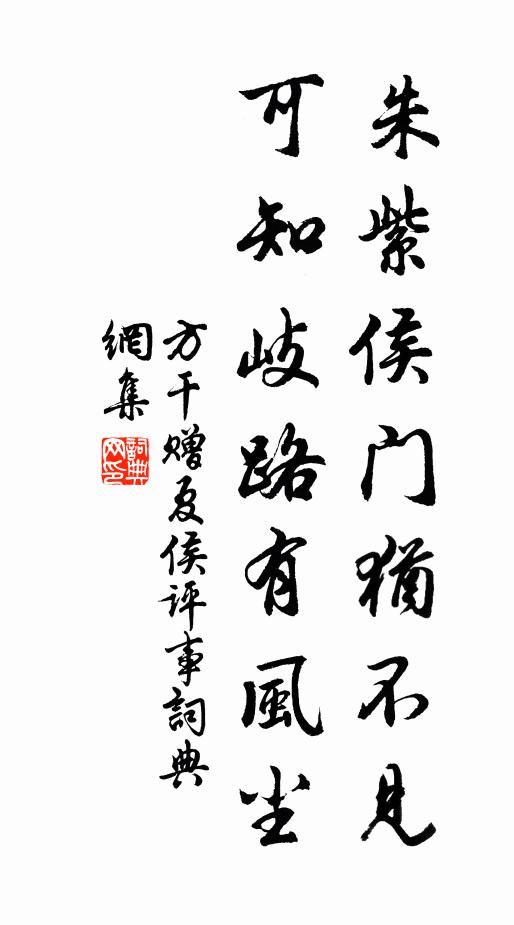 朱紫侯门猶不見
可知歧路有風尘
方干赠夏侯评事詞典
網集
詞典网印